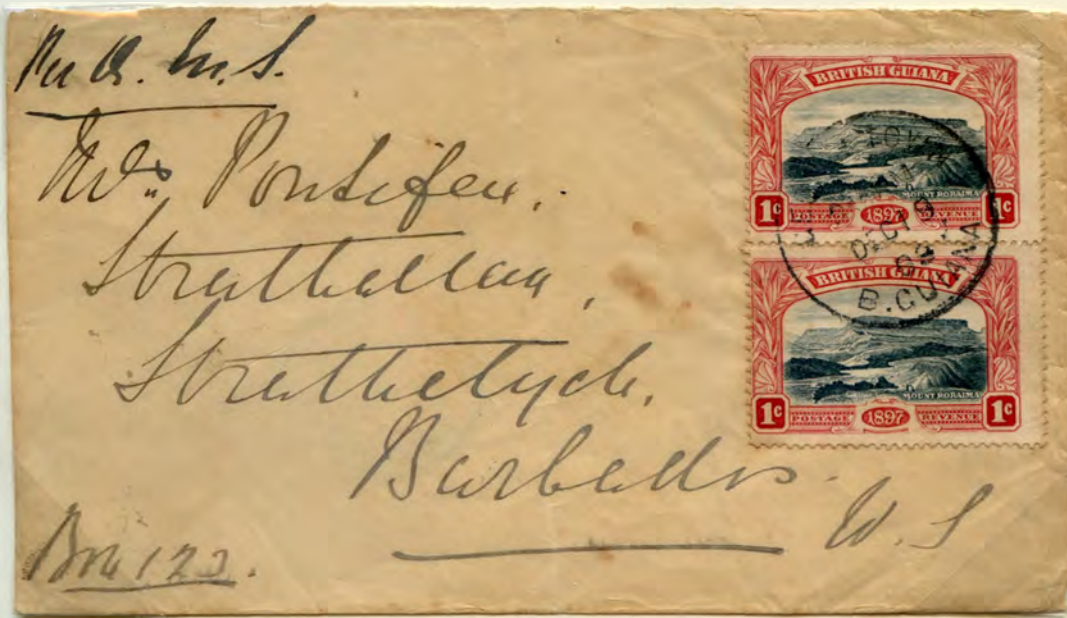 Per R. M. S.
Mrs Pontifex.
Strathallan,
Strathclyde,
Barbados.
W. I
Box 123.
BRITISH GUIANA
MOUNT RORAIMA
1c POSTAGE 1897 REVENUE 1c
DEC 19
02
B. GUIANA
BRITISH GUIANA
MOUNT RORAIMA
1c POSTAGE 1897 REVENUE 1c